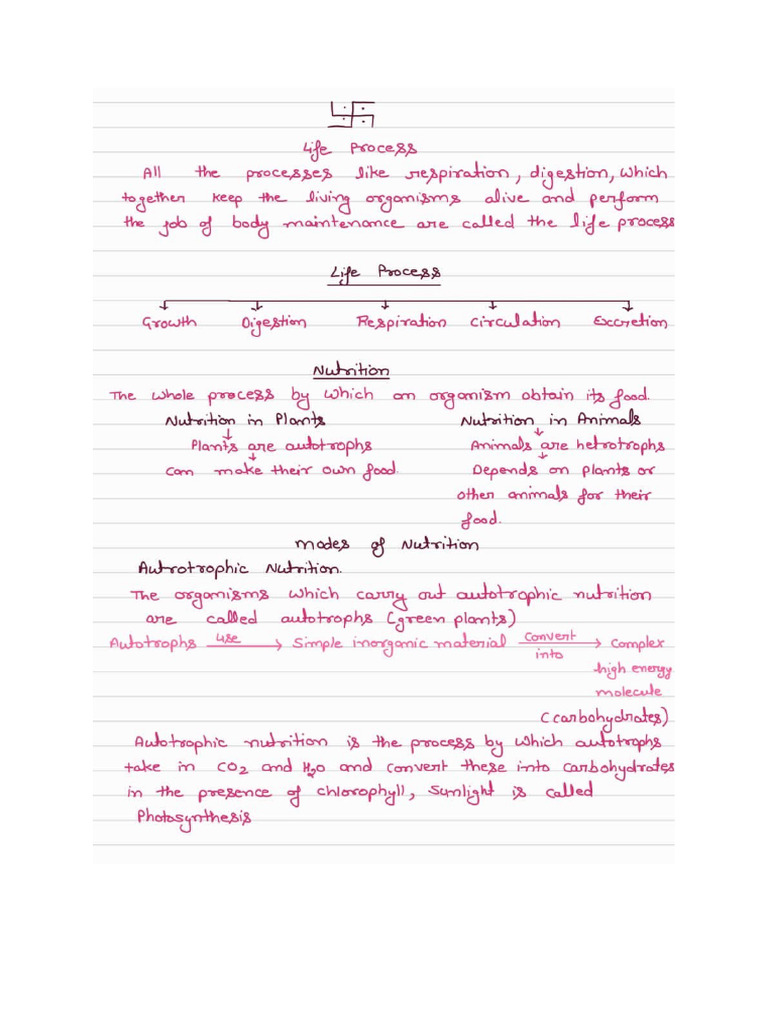 Life Process
All the processes like respiration, digestion, which
together keep the living organisms alive and perform
the job of body maintenance are called the life process
Life Process
Growth Digestion Respiration Circulation Excretion
Nutrition
The whole process by which an organism obtain its food.
Nutrition in Plants Nutrition in Animals
Plants are autotrophs Animals are hetrotrophs
Can make their own food. Depends on plants or
other animals for their
food.
Modes of Nutrition
Autrotrophic Nutrition.
The organisms which carry out autotrophic nutrition
are called autotrophs (green plants)
Autotrophs use → Simple inorganic material Convert into → Complex
high energy
molecule
(carbohydrates)
Autotrophic nutrition is the process by which autotrophs
take in CO2 and H2O and convert these into carbohydrates
in the presence of chlorophyll, Sunlight is called
Photosynthesis